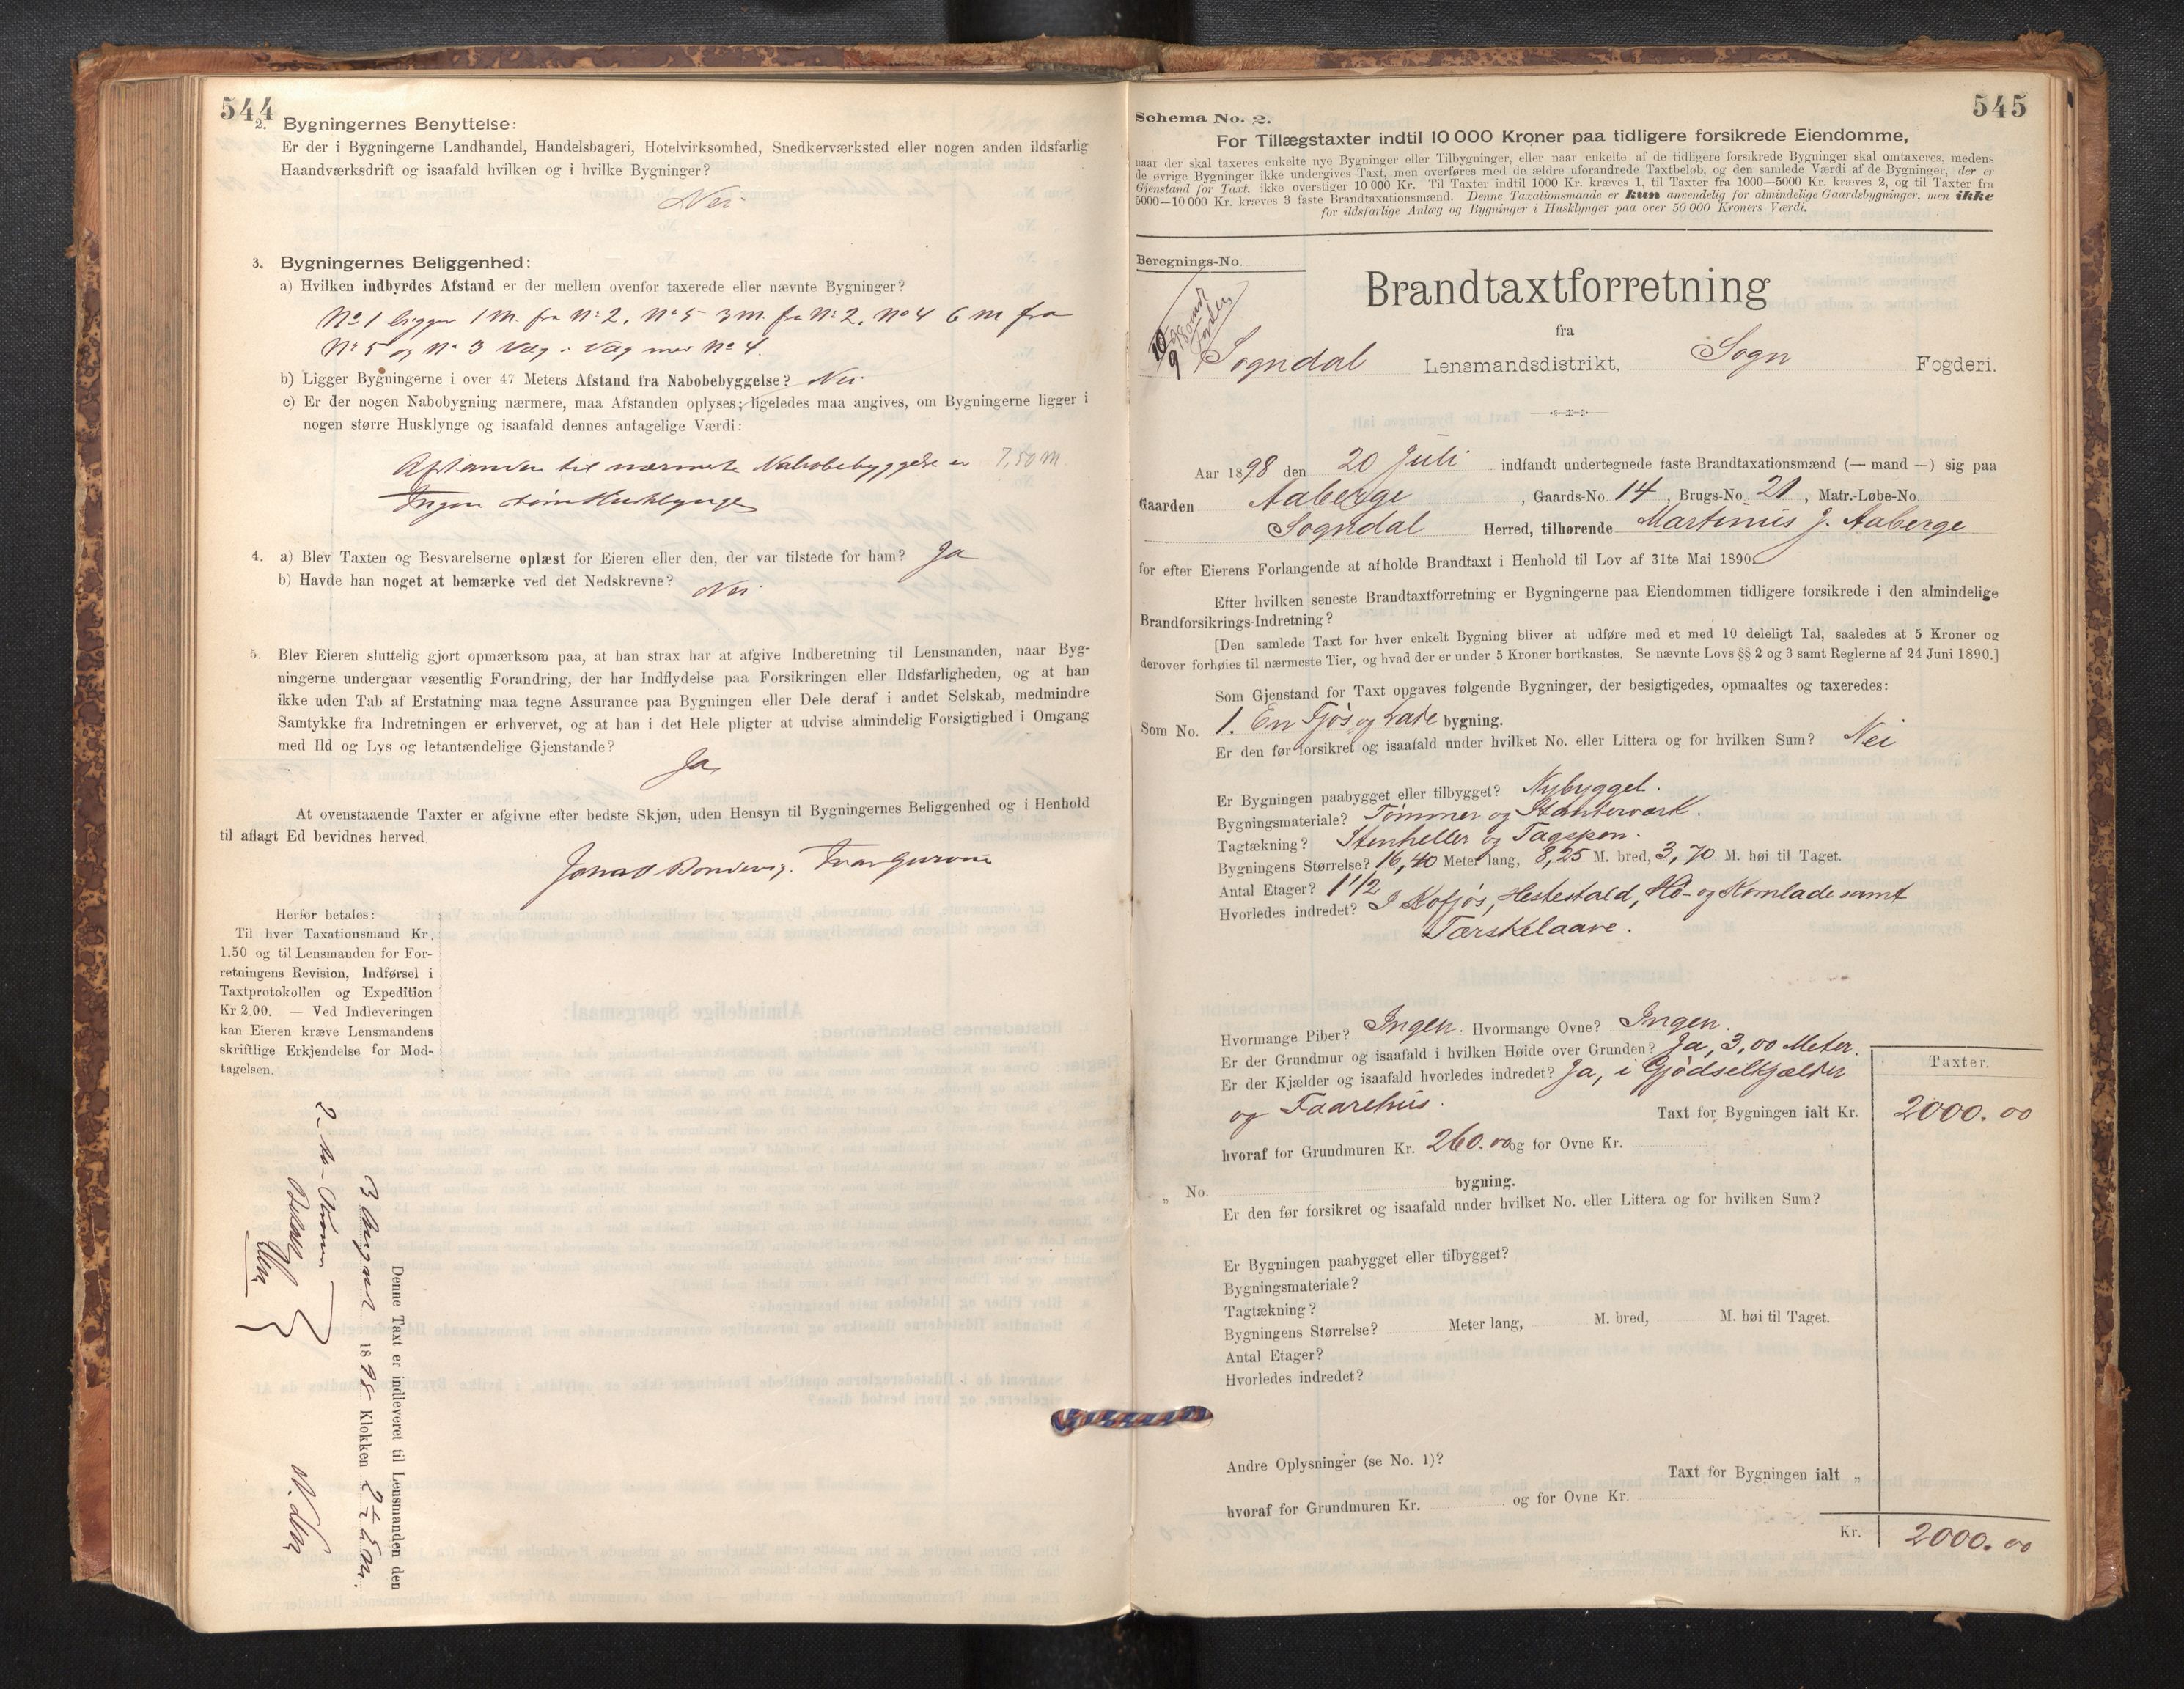 544
2. Bygningernes Benyttelse:
Er der i Bygningerne Landhandel, Handelsbageri, Hotelvirksomhed, Snedkerværksted eller nogen anden ildsfarlig
Haandværksdrift og isaafald hvilken og i hvilke Bygninger?
Nei
3. Bygningernes Beliggenhed:
a) Hvilken indbyrdes Afstand er der mellem ovenfor taxerede eller nævnte Bygninger?
No 1 ligger 1 M. fra No 2. No 5 3 M. fra No 2. No 4 6 M fra
No 5 og No 3 Væg i Væg med No 4.
b) Ligger Bygningerne i over 47 Meters Afstand fra Nabobebyggelse? Nei
c) Er der nogen Nabobygning nærmere, maa Afstanden oplyses; ligeledes maa angives, om Bygningerne ligger i
nogen større Husklynge og isaafald dennes antagelige Værdi:
Afstanden til nærmeste Nabobebyggelse er 7,50 M.
Ingen større Husklynge
4. a) Blev Taxten og Besvarelserne oplæst for Eieren eller den, der var tilstede for ham? Ja
b) Havde han noget at bemærke ved det Nedskrevne?
Nei
5. Blev Eieren sluttelig gjort opmærksom paa, at han strax har at afgive Indberetning til Lensmanden, naar Byg-
ningerne undergaar væsentlig Forandring, der har Indflydelse paa Forsikringen eller Ildsfarligheden, og at han
ikke uden Tab af Erstatning maa tegne Assurance paa Bygningen eller Dele deraf i andet Selskab, medmindre
Samtykke fra Indretningen er erhvervet, og at han i det Hele pligter at udvise almindelig Forsigtighed i Omgang
med Ild og Lys og letantændelige Gjenstande?
Ja
At ovenstaaende Taxter er afgivne efter bedste Skjøn, uden Hensyn til Bygningernes Beliggenhed og i Henhold
til aflagt Ed bevidnes herved.
Herfor betales:
Til hver Taxationsmand Kr.
1.50 og til Lensmanden for For-
retningens Revision, Indførsel i
Taxtprotokollen og Expedition
Kr. 2.00. — Ved Indleveringen
kan Eieren kræve Lensmandens
skriftlige Erkjendelse for Mod-
tagelsen.
Denne Taxt er indleveret til Lensmanden den
3 August 1898 Klokken 2 1/2 Em.
2 - to Kroner
Betalt
545
Schema No. 2.
For Tillægstaxter indtil 10 000 Kroner paa tidligere forsikrede Eiendomme,
naar der skal taxeres enkelte nye Bygninger eller Tilbygninger, eller naar enkelte af de tidligere forsikrede Bygninger skal omtaxeres, medens
de øvrige Bygninger ikke undergives Taxt, men overføres med de ældre uforandrede Taxtbeløb, og den samlede Værdi af de Bygninger, der er
Gjenstand for Taxt, ikke overstiger 10 000 Kr. Til Taxter indtil 1000 Kr. kræves 1, til Taxter fra 1000—5000 Kr. kræves 2, og til Taxter fra
5000—10 000 Kr. kræves 3 faste Brandtaxationsmænd. Denne Taxationsmaade er kun anvendelig for almindelige Gaardsbygninger, men ikke
for ildsfarlige Anlæg og Bygninger i Husklynger paa over 50 000 Kroners Værdi.
Beregnings-No.
Brandtaxtforretning
fra
Sogndal Lensmandsdistrikt, Sogn Fogderi.
Aar 1898 den 20 Juli indfandt undertegnede faste Brandtaxationsmænd (— mand —) sig paa
Gaarden Aaberge, Gaards-No. 14, Brugs-No. 21, Matr.-Løbe-No.
Sogndal Herred, tilhørende Martinus J. Aaberge
for efter Eierens Forlangende at afholde Brandtaxt i Henhold til Lov af 31te Mai 1890.
Efter hvilken seneste Brandtaxtforretning er Bygningerne paa Eiendommen tidligere forsikrede i den almindelige
Brandforsikrings-Indretning?
[Den samlede Taxt for hver enkelt Bygning bliver at udføre med et med 10 deleligt Tal, saaledes at 5 Kroner og
derover forhøies til nærmeste Tier, og hvad der er under 5 Kroner bortkastes. Se nævnte Lovs §§ 2 og 3 samt Reglerne af 24 Juni 1890.]
Som Gjenstand for Taxt opgaves følgende Bygninger, der besigtigedes, opmaaltes og taxeredes:
Som No. 1. En Fjøs og Lade bygning.
Er den før forsikret og isaafald under hvilket No. eller Littera og for hvilken Sum? Nei
Er Bygningen paabygget eller tilbygget? Nybygget.
Bygningsmateriale? Tømmer og Stænderværk.
Tagtækning? Stenheller og Tagspon.
Bygningens Størrelse? 16,40 Meter lang, 8,25 M. bred, 3,70 M. høi til Taget.
Antal Etager? 1 1/2
Hvorledes indredet? I Kofjøs, Hestestald, Hö- og Kornlade samt
Tærskelaave.
Hvormange Piber? Ingen. Hvormange Ovne? Ingen.
Er der Grundmur og isaafald i hvilken Høide over Grunden? Ja, 3,00 Meter.
Er der Kjælder og isaafald hvorledes indredet? Ja, i Gjödselkjælder
og Faarehus.
Taxter.
Taxt for Bygningen ialt Kr. 2000.00
hvoraf for Grundmuren Kr. 260.00 og for Ovne Kr.
„ No. bygning.
Er den før forsikret og isaafald under hvilket No. eller Littera og for hvilken Sum?
Er Bygningen paabygget eller tilbygget?
Bygningsmateriale?
Tagtækning?
Bygningens Størrelse? Meter lang, M. bred, M. høi til Taget.
Antal Etager?
Hvorledes indredet?
Andre Oplysninger (se No. 1)?
Taxt for Bygningen ialt „
hvoraf for Grundmuren Kr. og for Ovne Kr.
Kr. 2000.00